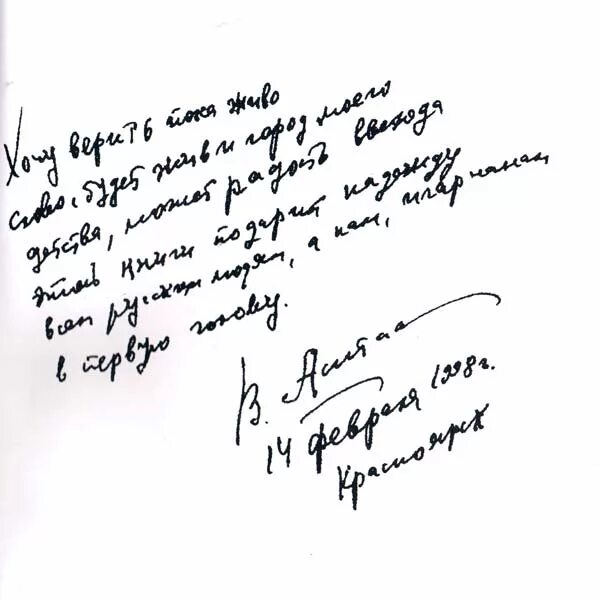 Хочу верить пока живо
слово, будет жив и город моего
детства, может радость выхода
этой книги подарит надежду
всем русским людям, а нам, игарчанам
в первую голову.
В. Астаф
14 февраля 1998г.
Красноярск